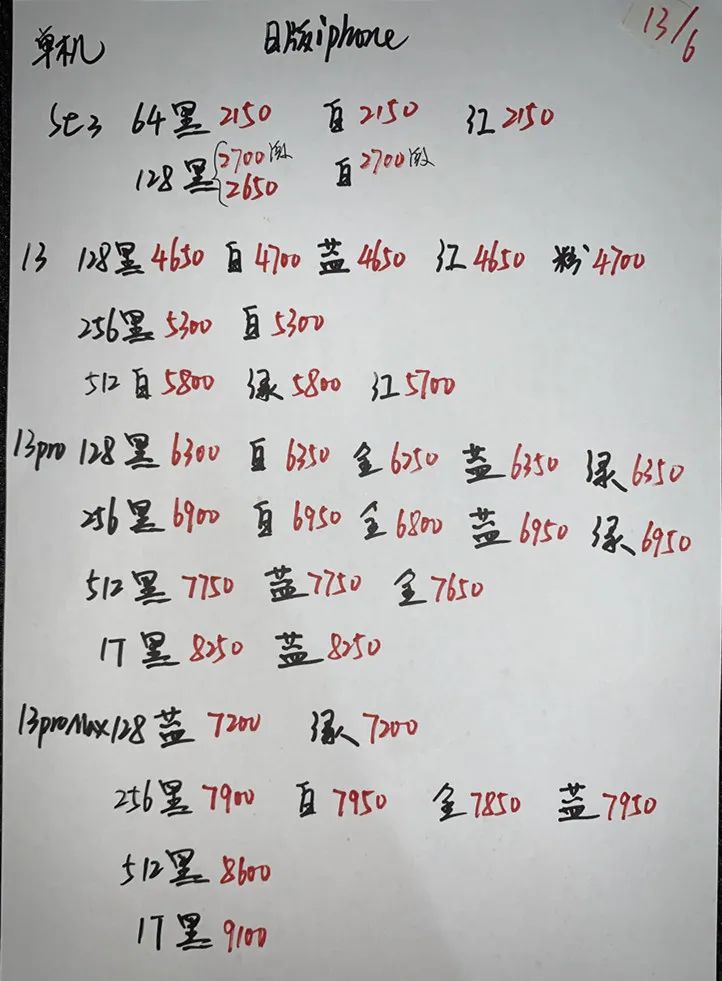 单机 日版iphone 13/6
SE3 64黑2150 白2150 红2150
128黑2700激 2650 白2700激
13 128黑4650 白4700 蓝4650 红4650 粉4700
256黑5300 白5300
512白5800 绿5800 红5700
13pro 128黑6300 白6350 金6250 蓝6350 绿6350
256黑6900 白6950 金6800 蓝6950 绿6950
512黑7750 蓝7750 金7650
1T黑8250 蓝8250
13proMax128蓝7200 绿7200
256黑7900 白7950 金7850 蓝7950
512黑8600
1T黑9100